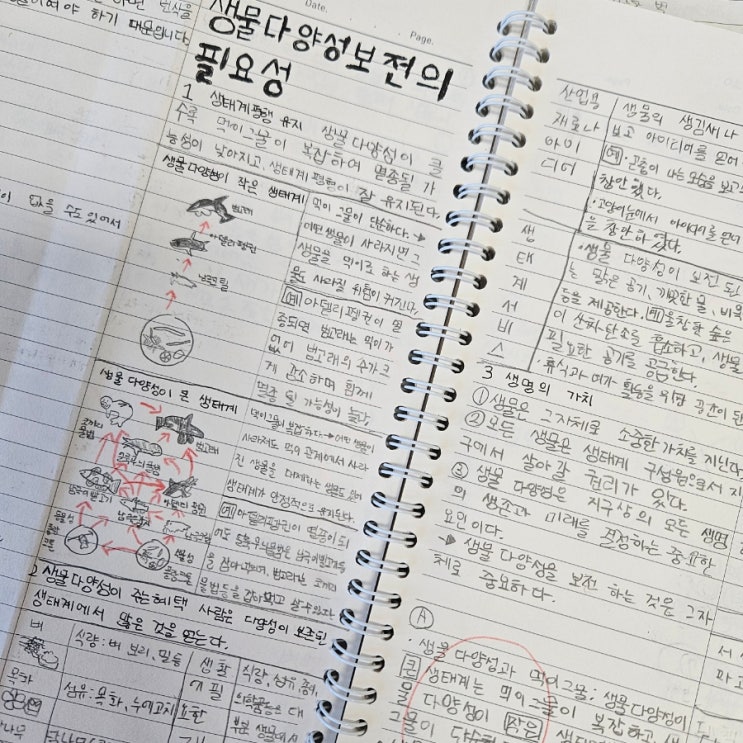 하면 번식을
들이여야 하기 때문입니다.
있을 수도 있어서
Date.
Page.
생물다양성보전의
필요성
1 생태계평형 유지 생물다양성이 클
수록 먹이그물이 복잡하여 멸종될 가
능성이 낮아지고, 생태계 평형이 잘 유지된다.
생물 다양성이 작은 생태계
범고래
아델리 펭귄
남극크릴
먹이 그물이 단순하다. →
어떤 생물이 사라지면 그
생물을 먹이로 하는 생
물도 사라질 위험이 커진다.
예 아델리펭귄이 멸
종되면 범고래는 먹이가
없어 범고래의 수가 크
게 감소하며 함께
멸종 될 가능성이 높다.
생물 다양성이 큰 생태계
범고래
먹이그물이 복잡하다. → 어떤 생물이
사라져도 먹이 관계에서 사라
진 생물을 대체하는 생물도 있어
생태계가 안정적으로 유지된다.
예 아델리펭귄이 멸종이 되
2 생물다양성이 주는혜택 사람은 다양성이 보존된
생태계에서 많은 것을 얻는다.
벼
식량: 벼 보리, 밀 등
목화
섬유: 목화, 누에고치
생활
필
요한
식량, 섬유, 종이,
의약품 등은 대
부분 생물에서
산업용
재료나
아이
디어
생물의 생김새나
보고 아이디어를 얻어
예 · 고출이 나는 모습을 보고
창안 했다.
· 고양이눈에서 아이디어를 얻어
을 창안 하였다.
생
태
계
서
비
스
· 생물 다양성이 보전 된
는 맑은 공기, 깨끗한 물, 비옥
등을 제공한다. 예 울창한 숲은
이 산화 탄소를 흡수하고, 생물
필요한 공기를 공급한다.
· 휴식과 여가 활동을 위한 공간이 된
3 생명의 가치
① 생물은 그자체로 소중한 가치를 지닌다.
② 모든 생물은 생태계 구성원으로서 지
구에서 살아갈 권리가 있다.
③ 생물 다양성은 지구상의 모든 생명
의 생존과 미래를 결정하는 중요한
요인이다.
→ 생물 다양성을 보전 하는 것은 그자
체로 중요하다.
Ⓐ
· 생물 다양성과 먹이그물: 생물다양성이
큰 생태계는 먹이그물이 복잡하고 생물
다양성이 작은 생태
그물이 단순